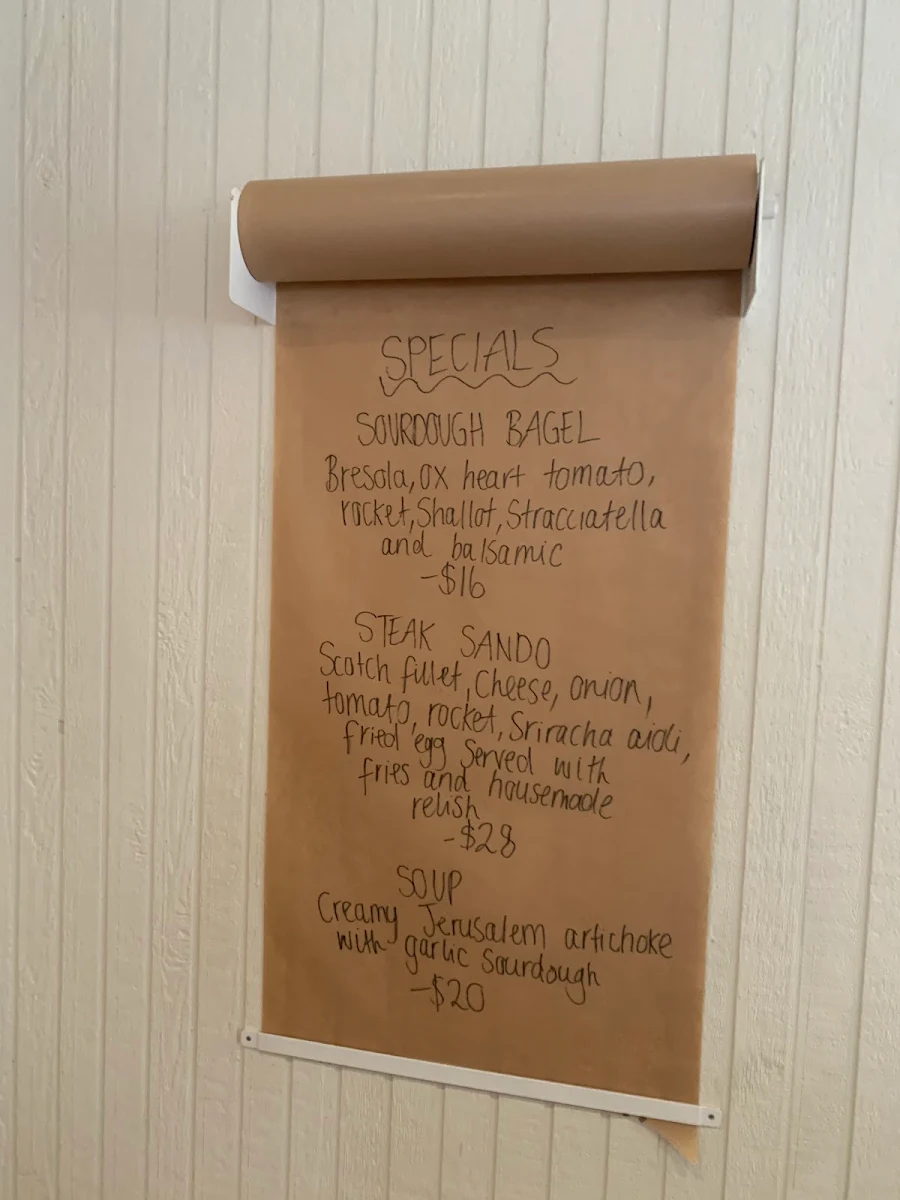 SPECIALS
SOURDOUGH BAGEL
Bresola, ox heart tomato,
rocket, Shallot, Stracciatella
and balsamic
-$16
STEAK SANDO
Scotch fillet, Cheese, onion,
tomato, rocket, Sriracha aioli,
fried egg Served with
fries and housemade
relish
-$28
SOUP
Creamy Jerusalem artichoke
with garlic sourdough
-$20